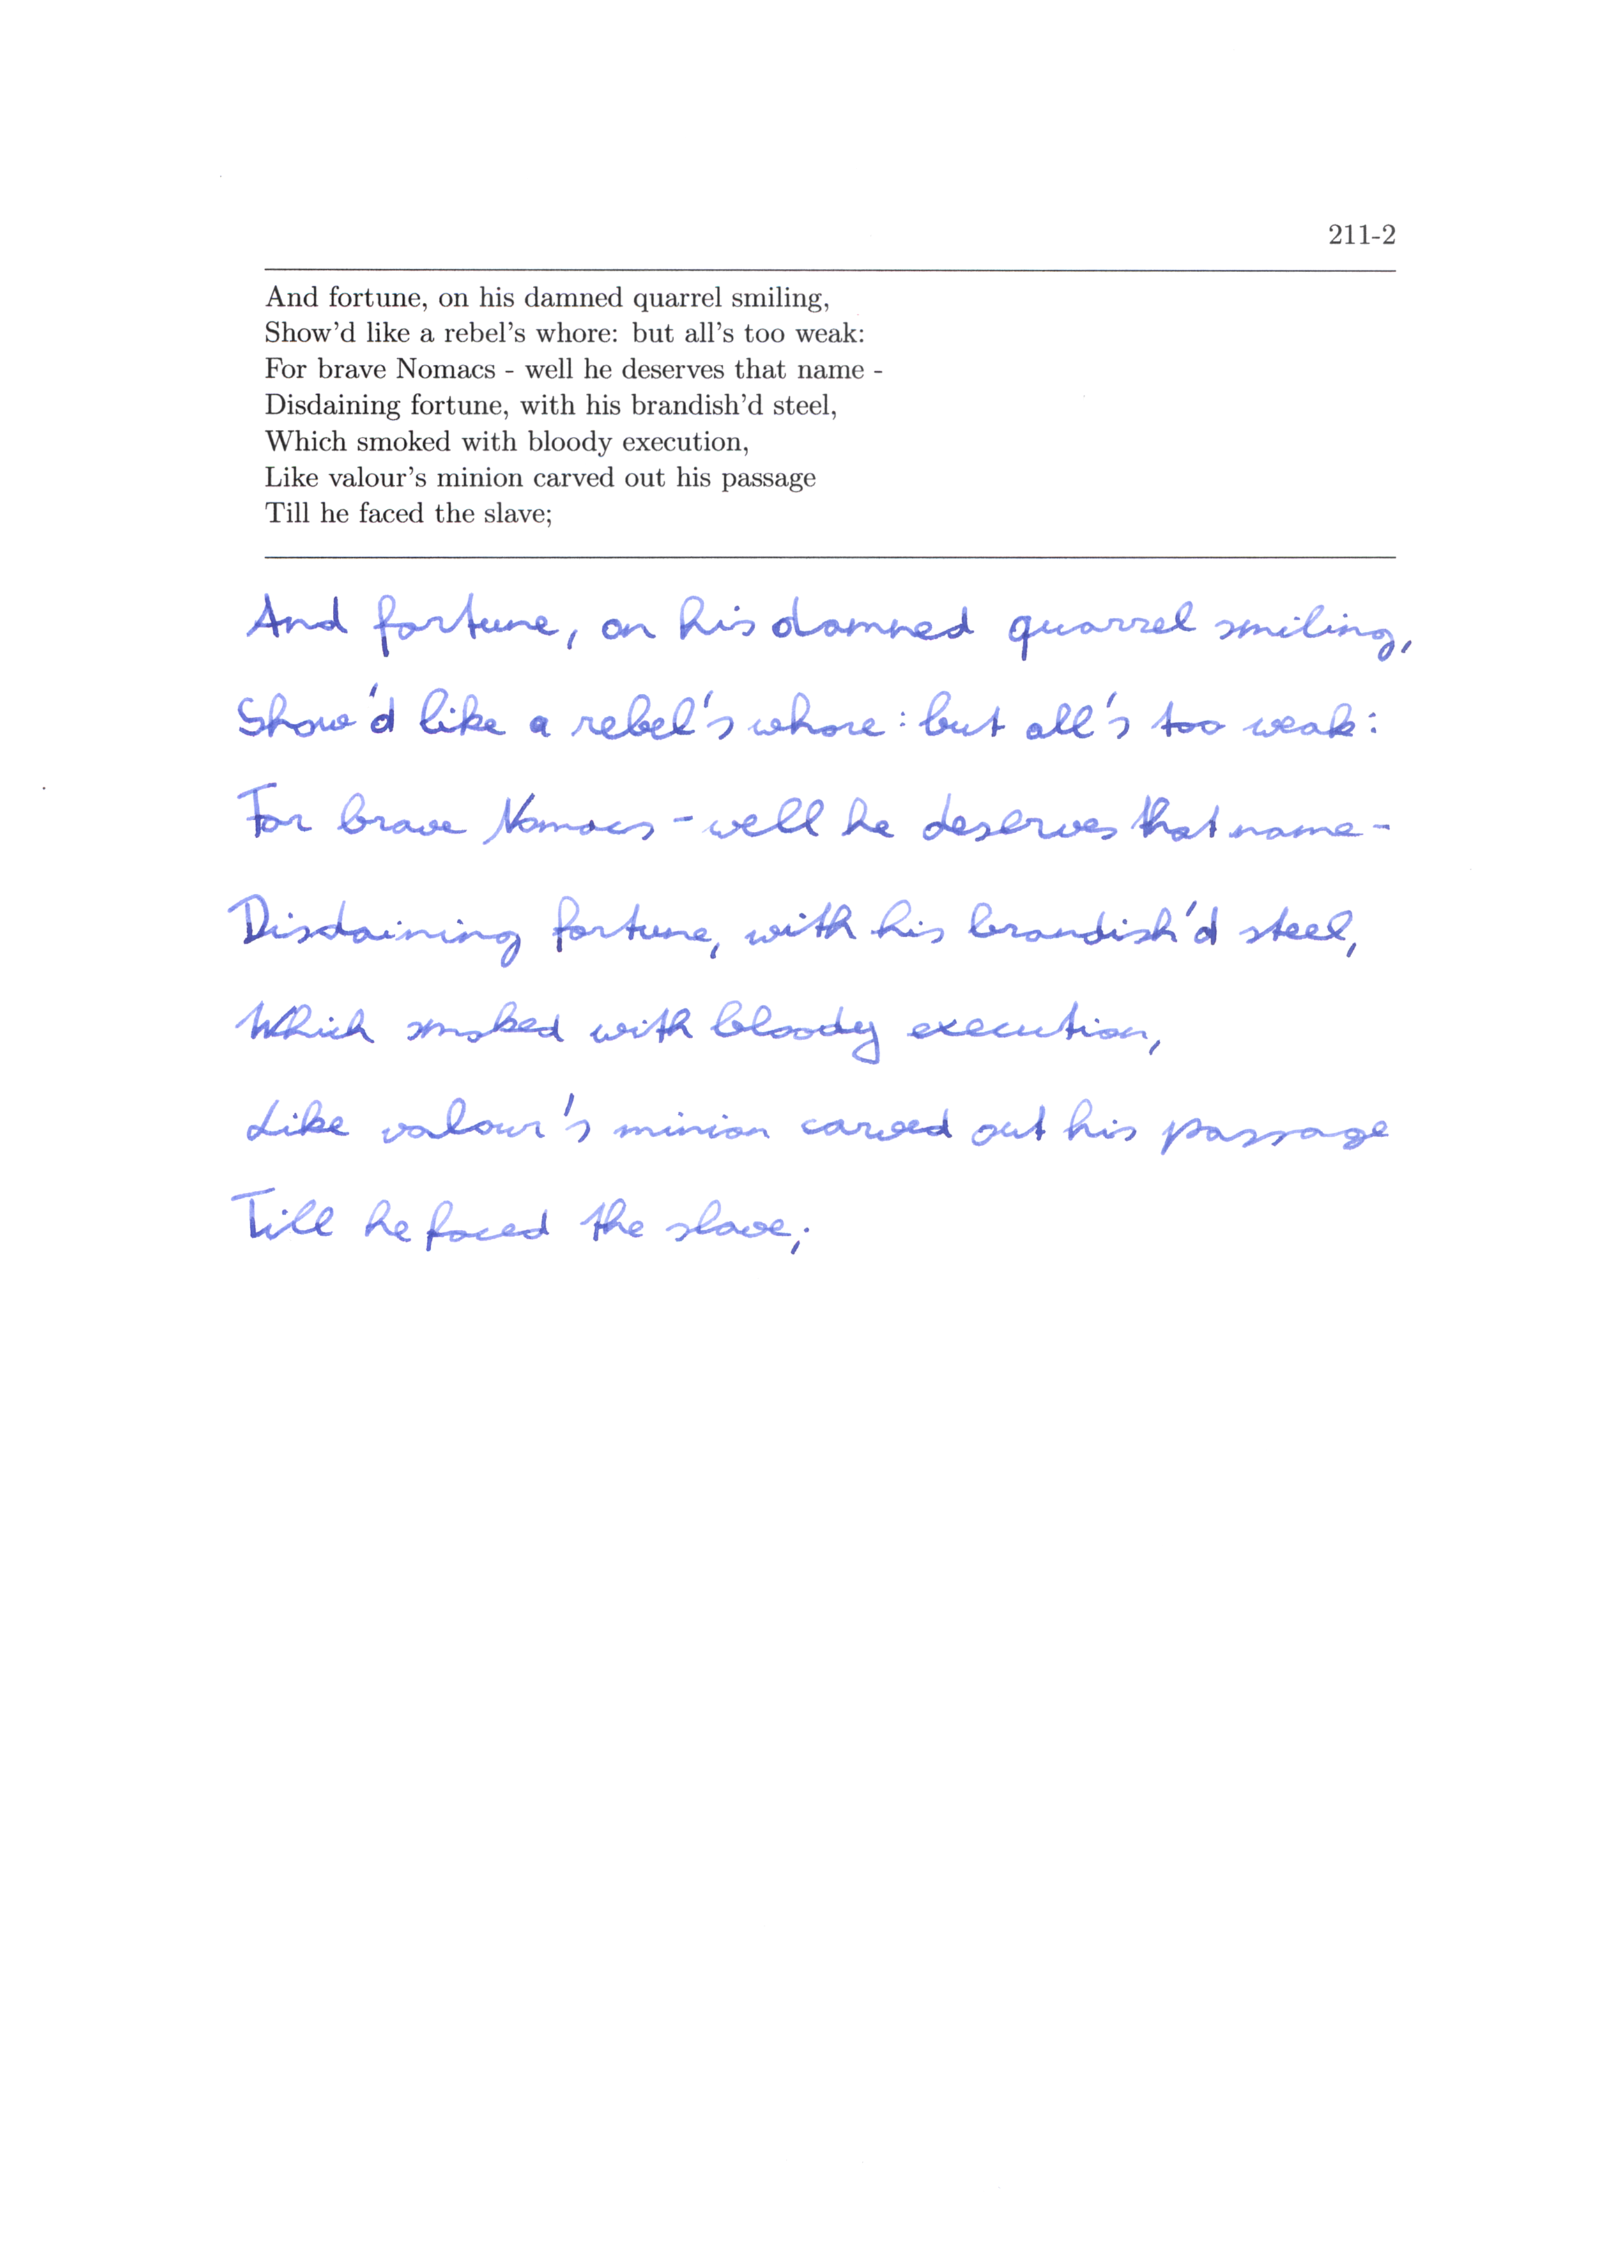 211-2
And fortune, on his damned quarrel smiling,
Show'd like a rebel's whore: but all's too weak:
For brave Nomacs - well he deserves that name -
Disdaining fortune, with his brandish'd steel,
Which smoked with bloody execution,
Like valour's minion carved out his passage
Till he faced the slave;
And fortune, on his damned quarrel smiling,
Show'd like a rebel's whore: but all's too weak:
For brave Nomacs - well he deserves that name -
Disdaining fortune, with his brandish'd steel,
Which smoked with bloody execution,
Like valour's minion carved out his passage
Till he faced the slave;